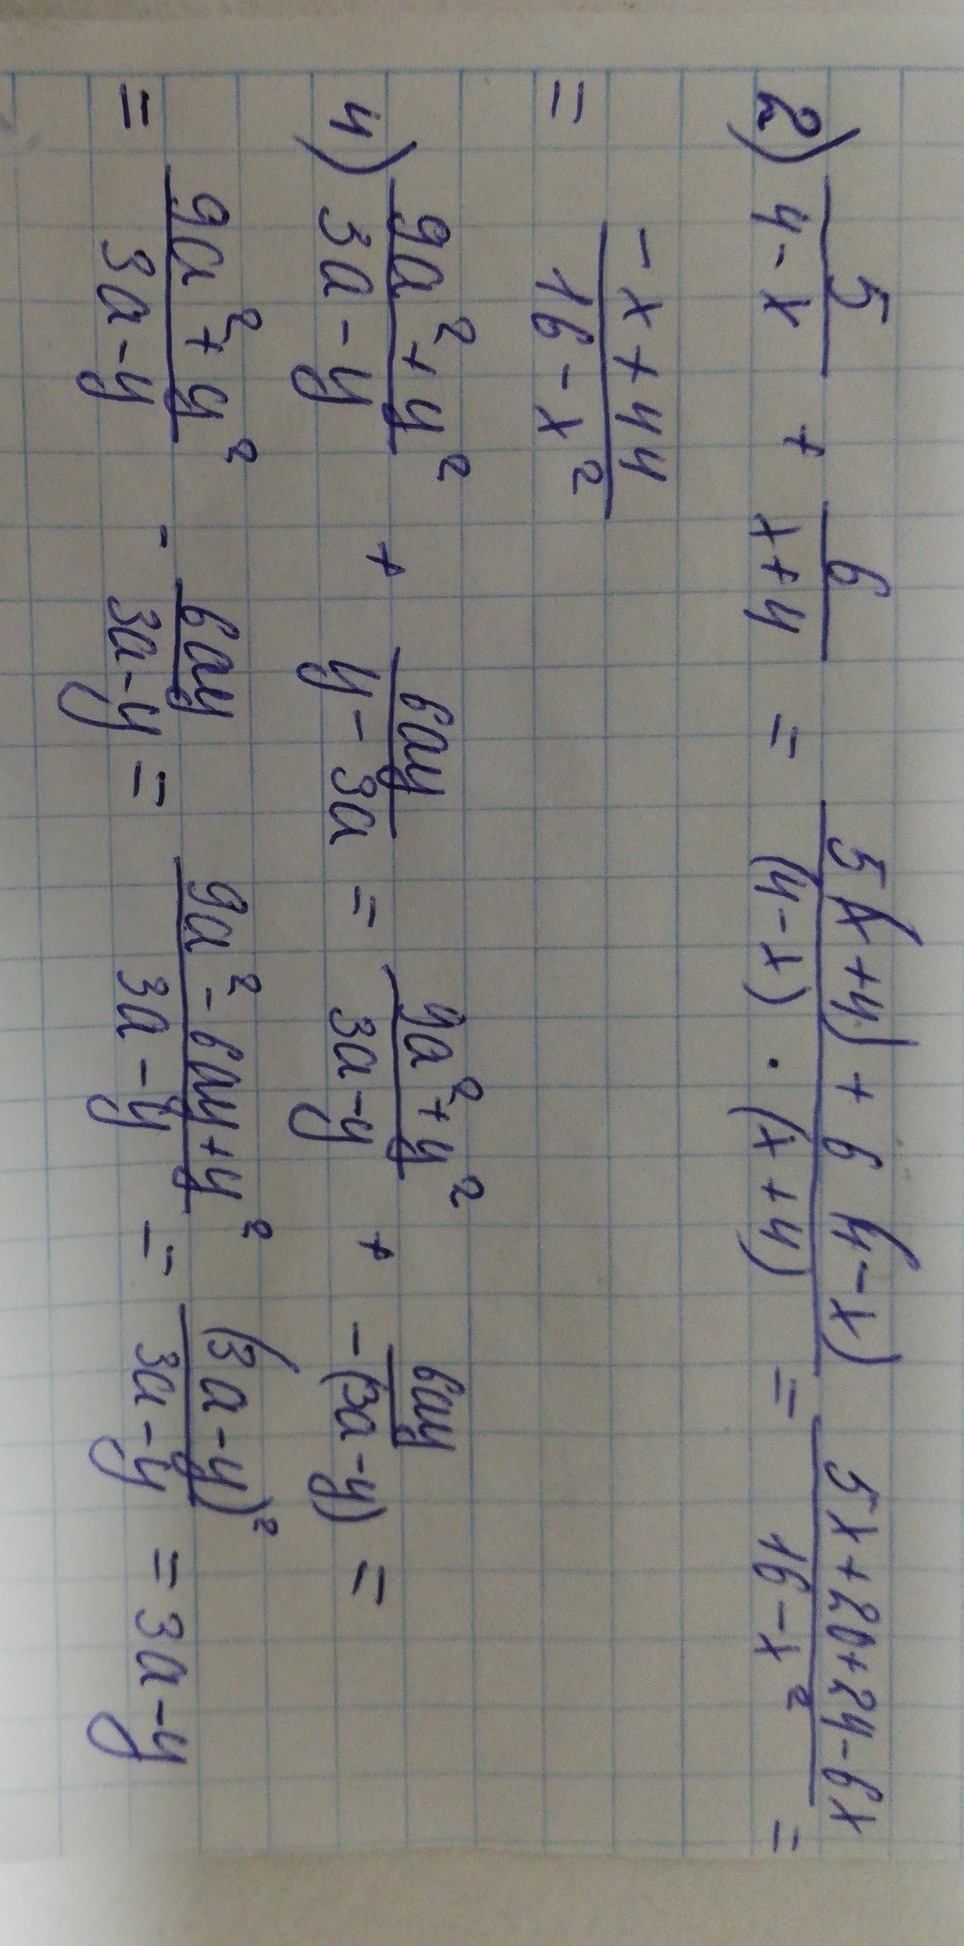 2) 5/(4-x) + 6/(x+4) = (5(x+4)+6(4-x))/((4-x)·(x+4)) = (5x+20+24-6x)/(16-x²) =
= (-x+44)/(16-x²)
4) (9a²+y²)/(3a-y) + 6ay/(y-3a) = (9a²+y²)/(3a-y) + 6ay/(-(3a-y)) =
= (9a²+y²)/(3a-y) - 6ay/(3a-y) = (9a²-6ay+y²)/(3a-y) = (3a-y)²/(3a-y) = 3a-y